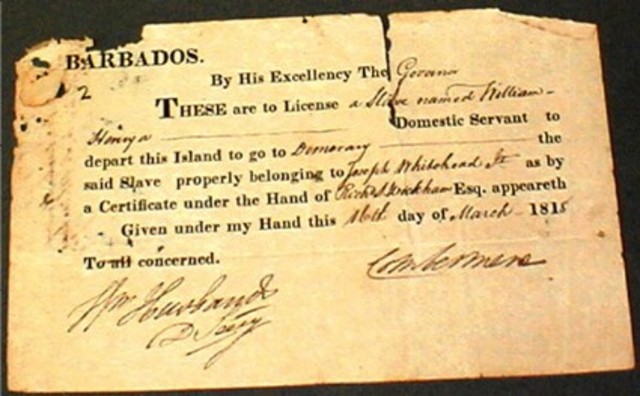 BARBADOS.
2
By His Excellency The Governor
THESE are to License a Slave named William-
Henry a Domestic Servant to
depart this Island to go to Demerary the
said Slave properly belonging to Joseph Whitehead as by
a Certificate under the Hand of Wickham Esq. appeareth
Given under my Hand this day of March 181
To all concerned.
Combermere
Wm Husbands
D Secy